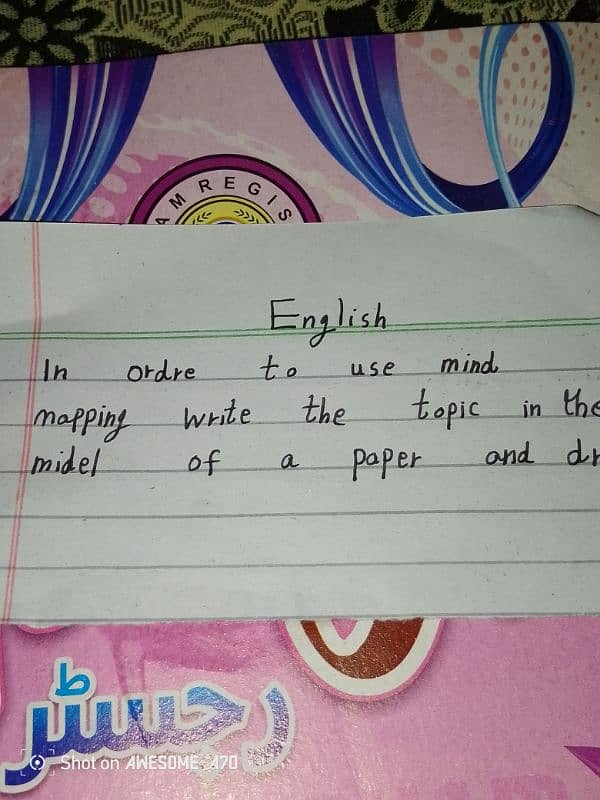 AM REGIS
English
In ordre to use mind
mapping write the topic in the
midel of a paper and
رجسٹر
Shot on AWESOME_A70